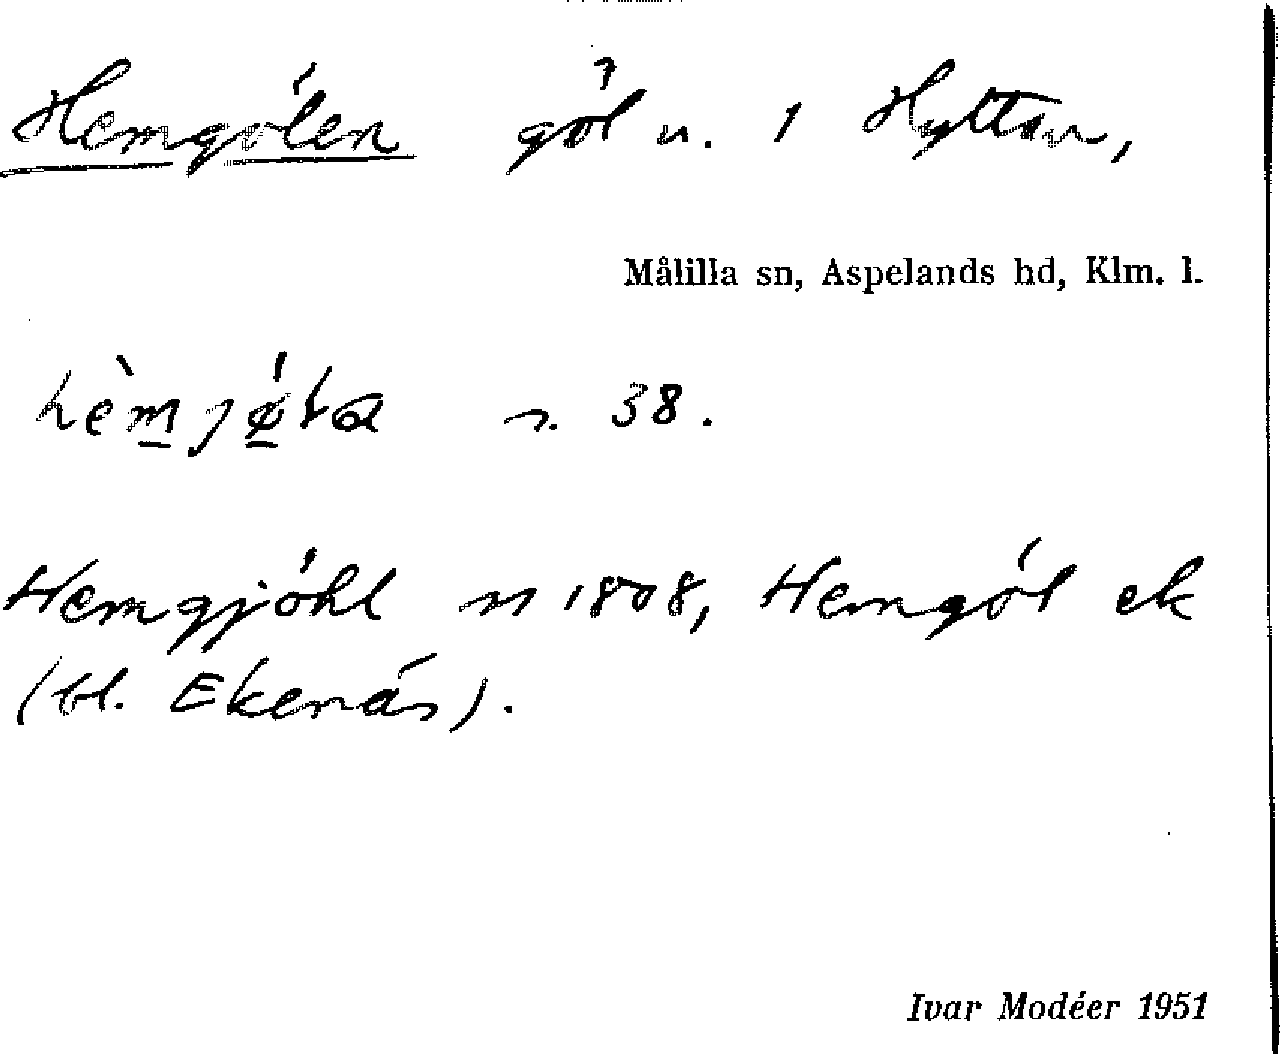 Hemgölen göl n. 1 Hyttan,
Målilla sn, Aspelands hd, Klm. l.
n. 38.
Hemgjöhl m 1808, Hemgöl ek
(bl. Ekenäs).
Ivar Modéer 1951